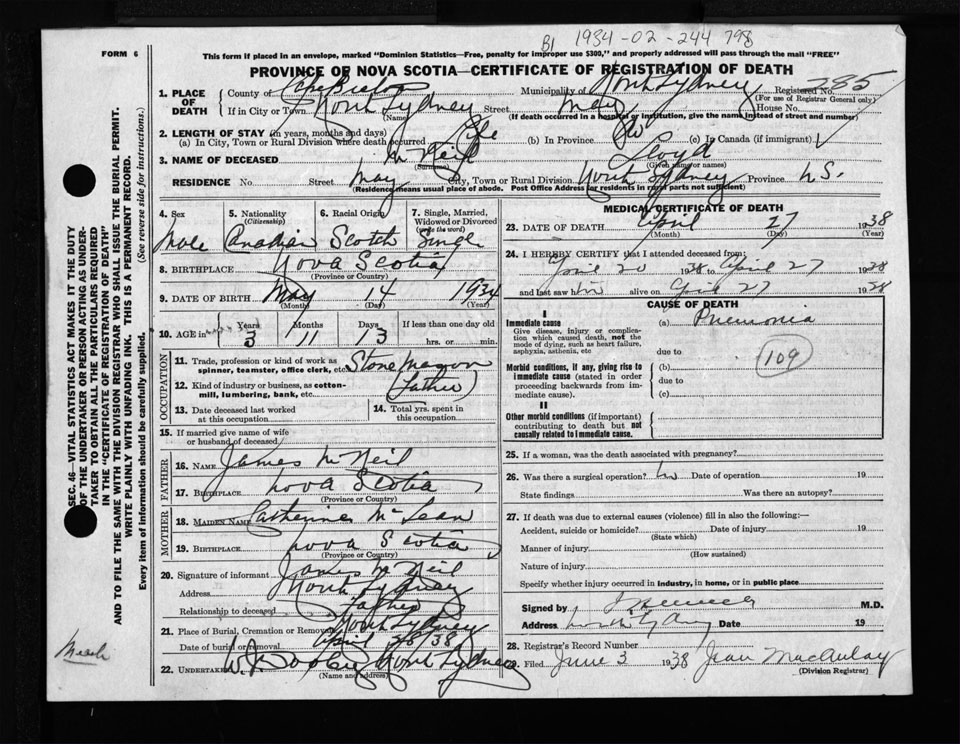 B1 1934-02-244 798
FORM 6
This form if placed in an envelope, marked "Dominion Statistics—Free, penalty for improper use $300," and properly addressed will pass through the mail "FREE"
PROVINCE OF NOVA SCOTIA—CERTIFICATE OF REGISTRATION OF DEATH
1. PLACE OF DEATH
County of Cape Breton Municipality of North Sydney Registered No. 785
(For use of Registrar General only)
If in City or Town North Sydney Street May House No.
(Name) (If death occurred in a hospital or institution, give the name instead of street and number)
2. LENGTH OF STAY (in years, months and days)
(a) In City, Town or Rural Division where death occurred Life (b) In Province (c) In Canada (if immigrant)
3. NAME OF DECEASED McNeil Lloyd
(Surname) (Given name or names)
RESIDENCE No. Street May City, Town or Rural Division North Sydney Province N.S.
(Residence means usual place of abode. Post Office Address for residents in rural parts not sufficient)
4. Sex 5. Nationality (Citizenship) 6. Racial Origin 7. Single, Married, Widowed or Divorced (write the word)
Male Canadian Scotch Single
8. BIRTHPLACE Nova Scotia
(Province or Country)
9. DATE OF BIRTH May 14 1934
(Month) (Day) (Year)
10. AGE in Years Months Days If less than one day old
3 11 13 hrs. or min.
OCCUPATION
11. Trade, profession or kind of work as spinner, teamster, office clerk, etc. Stone Mason
12. Kind of industry or business, as cotton-mill, lumbering, bank, etc. (Father)
13. Date deceased last worked at this occupation
14. Total yrs. spent in this occupation
15. If married give name of wife or husband of deceased
FATHER
16. NAME James McNeil
17. BIRTHPLACE Nova Scotia
(Province or Country)
MOTHER
18. MAIDEN NAME Catherine McLean
19. BIRTHPLACE Nova Scotia
(Province or Country)
20. Signature of informant James McNeil
Address North Sydney
Relationship to deceased Father
21. Place of Burial, Cremation or Removal North Sydney
Date of burial or removal April 28/38
22. Undertaker North Sydney
(Name and address)
MEDICAL CERTIFICATE OF DEATH
23. DATE OF DEATH April 27 1938
(Month) (Day) (Year)
24. I HEREBY CERTIFY that I attended deceased from:
April 20 1938 to April 27 1938
and last saw him alive on April 27 1938
CAUSE OF DEATH
I
Immediate cause (a) Pnemonia
Give disease, injury or complication which caused death, not the mode of dying, such as heart failure, asphyxia, asthenia, etc
due to
109
Morbid conditions, if any, giving rise to immediate cause (stated in order proceeding backwards from immediate cause).
(b)
due to
(c)
II
Other morbid conditions (if important) contributing to death but not causally related to immediate cause.
25. If a woman, was the death associated with pregnancy?
26. Was there a surgical operation? Date of operation 19
State findings Was there an autopsy?
27. If death was due to external causes (violence) fill in also the following:—
Accident, suicide or homicide? Date of injury 19
(State which)
Manner of injury
(How sustained)
Nature of injury
Specify whether injury occurred in industry, in home, or in public place
Signed by M.D.
Address North Sydney Date 19
28. Registrar's Record Number
29. Filed June 3 1938 Jean MacAulay
(Division Registrar)
SEC. 46—VITAL STATISTICS ACT MAKES IT THE DUTY
OF THE UNDERTAKER OR PERSON ACTING AS UNDERTAKER TO OBTAIN ALL THE PARTICULARS REQUIRED
IN THE "CERTIFICATE OF REGISTRATION OF DEATH"
AND TO FILE THE SAME WITH THE DIVISION REGISTRAR WHO SHALL ISSUE THE BURIAL PERMIT.
WRITE PLAINLY WITH UNFADING INK. THIS IS A PERMANENT RECORD.
Every item of information should be carefully supplied. (See reverse side for instructions.)